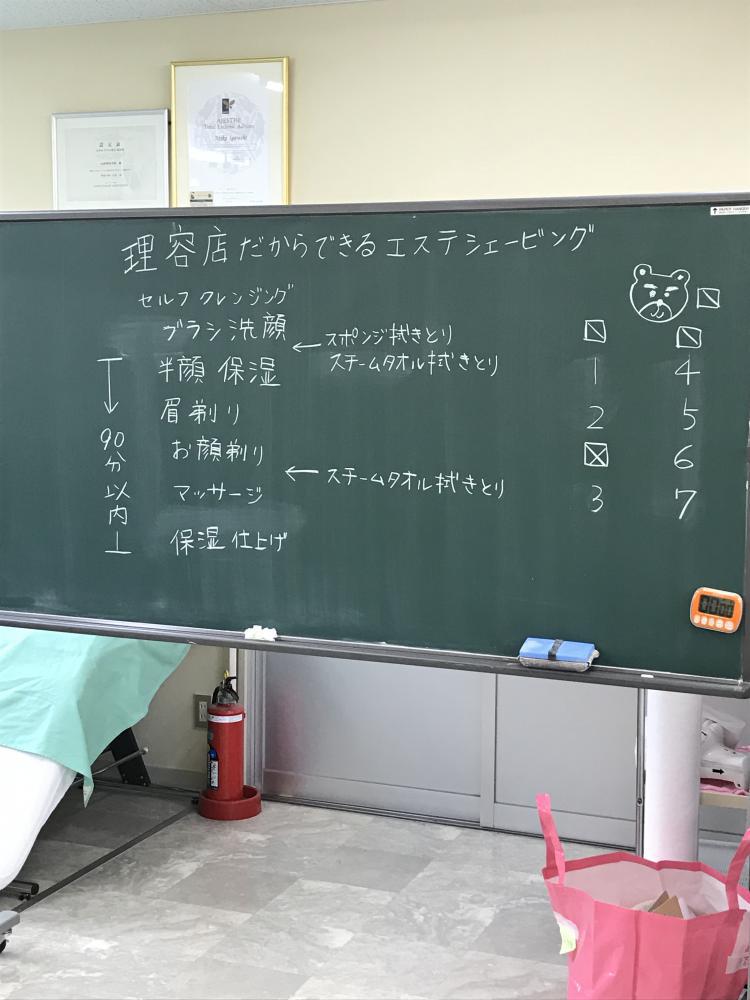 理容店だからできるエステシェービング
セルフクレンジング
ブラシ洗顔
←スポンジ拭きとり
スチームタオル拭きとり
半顔 保湿
眉剃り
お顔剃り
←スチームタオル拭きとり
マッサージ
保湿仕上げ
90分以内
1
2
3
4
5
6
7